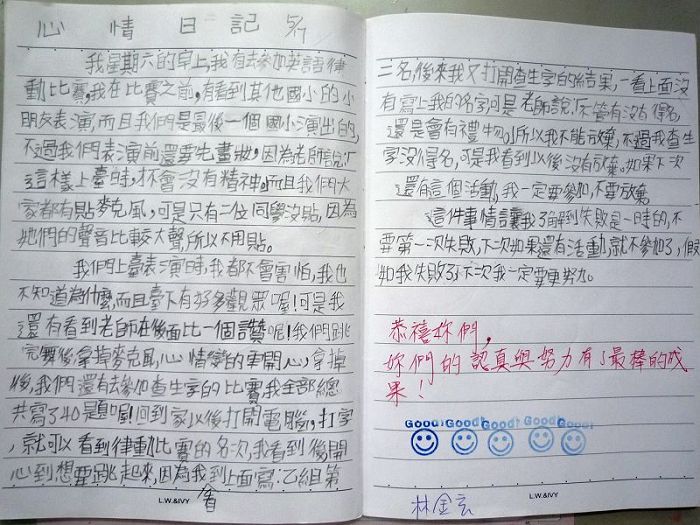 心情日記 5/7
我星期六的早上,我有去參加英語律
動比賽,我在比賽之前,有看到其他國小的小
朋友表演,而且我們是最後一個國小演出的,
不過我們表演前還要先畫妝,因為老師說:「
這樣上臺時,才不會沒有精神。」而且我們大
家都有貼麥克風,可是只有二位同學沒貼,因為
她們的聲音比較大聲,所以不用貼。
我們上臺表演時,我都不會害怕,我也
不知道為什麼,而且臺下有好多觀眾喔!可是我
還有看到老師在後面比一個讚呢!我們跳
完舞後拿掉麥克風,心情變的車開心,拿掉
後,我們還有去參加查生字的比賽,我全部總
共寫了40題喔!回到家以後打開電腦,打字
,就可以看到律動比賽的名次,我看到後開
心到想要跳起來,因為我看到上面寫:乙組第
L.W.&IVY
二名,後來我又打開查生字的結果,一看上面沒
有寫上我的名字,可是老師說:「不管有沒有得名,
還是會有禮物。」所以我不能放棄,不過我查生
字沒得名,可是我看到以後沒有放棄。如果下次
還有這個活動,我一定要參加,不要放棄。
這件事情讓我了解到失敗是一時的,不
要第一次失敗,下次如果還有活動,就不參加了,假
如我失敗了,下次我一定要更努加。
恭禧妳們,
妳們的認真與努力有了最棒的成
果!
Good! Good! Good! Good! Good!
林金玄
L.W.&IVY